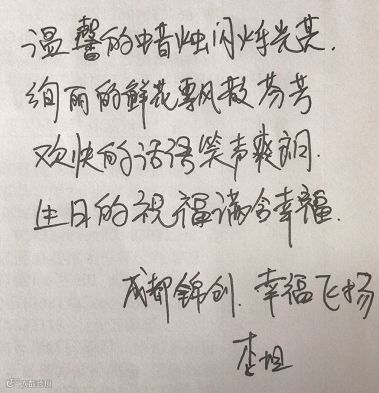 温馨的蜡烛闪烁光芒.
绚丽的鲜花飘散芬芳
欢快的话语笑声爽朗.
生日的祝福满含幸福.
成都锦创.幸福飞扬